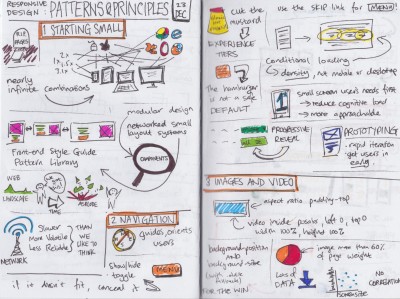 RESPONSIVE
DESIGN
PATTERNS & PRINCIPLES
23
DEC
1 STARTING SMALL
RIP
PAGES
2x
1.5x
3.1x
nearly
infinite combinations
modular design
networked small
layout systems
Front-end Style Guide
Pattern Library
COMPONENTS
WEB
LANDSCAPE
TIME
ASKEDE
2 NAVIGATION
Slower
More Volatile
Less Reliable
THAN
WE
LIKE TO
THINK
NETWORK
guides, orients
users
Show/hide
toggle
MENU
if it don't fit, conceal it
cut the
mustard
EXPERIENCE
TIERS
The hamburger
is not a safe
DEFAULT
use the SKIP link for MENU!
Conditional loading
density, not mobile or desktop
small screen users needs first
→ reduce cognitive load
→ more approachable
PROGRESSIVE
REVEAL
PROTOTYPING
- rapid iteration
- get users in
early!
3 IMAGES AND VIDEO
aspect ratio padding-top
video inside posabs, left 0, top 0
width 100%, height 100%
background-position
AND
background-size
FOR THE WIN
image more than 60%
of page weight
LOSS OF
DATA
NO
CORRELATION
SCREENSIZE